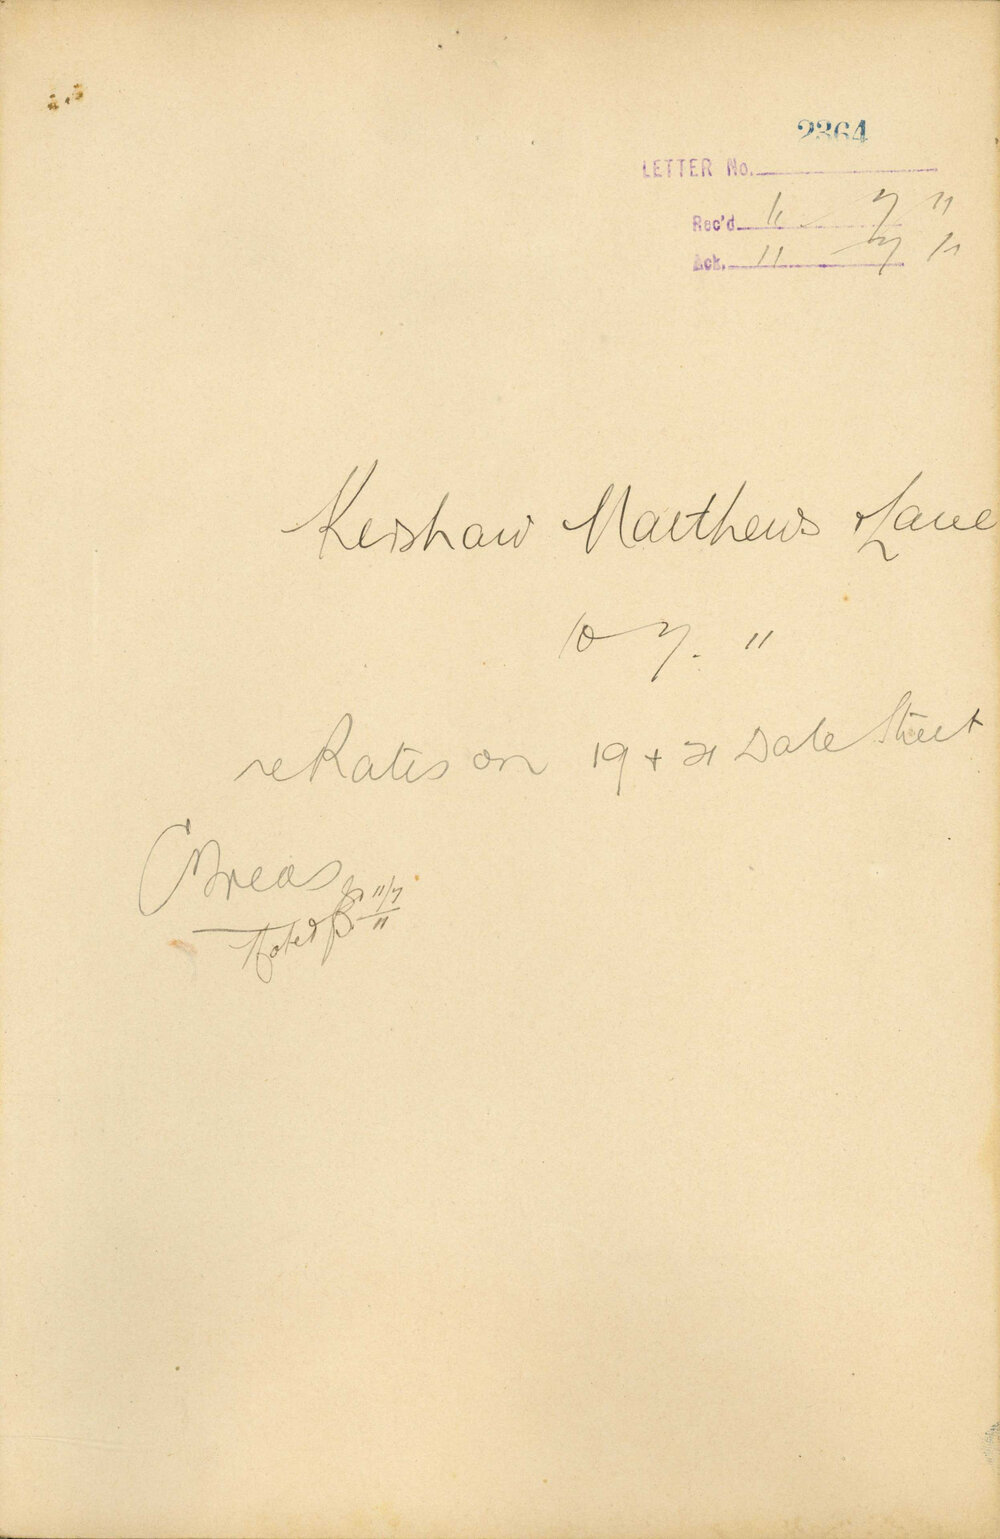 2364
LETTER No.
Rec'd 11 7 11
Ack. 11 7 11
Kershaw Matthews & Lane
10 7. 11
re Rates on 19 + 21 Dale Street
Noted 11/7/11